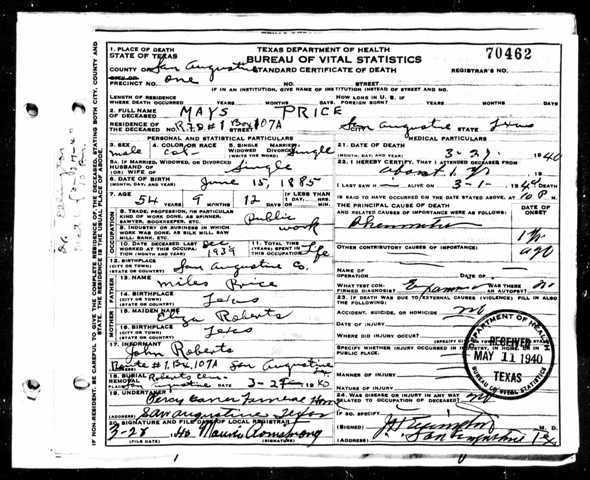 TEXAS DEPARTMENT OF HEALTH
BUREAU OF VITAL STATISTICS
STANDARD CERTIFICATE OF DEATH
70462
REGISTRAR'S NO.
1. PLACE OF DEATH
STATE OF TEXAS
COUNTY OF San Augustine
CITY OR
PRECINCT NO. one
NO. STREET
IF IN AN INSTITUTION, GIVE NAME OF INSTITUTION INSTEAD OF STREET AND NO.
LENGTH OF RESIDENCE
WHERE DEATH OCCURRED YEARS MONTHS DAYS
HOW LONG IN U. S. IF
FOREIGN BORN? YEARS MONTHS DAYS
2. FULL NAME
OF DECEASED MAYS PRICE
RESIDENCE OF
THE DECEASED NO. R.F.D #1 Box 107A STREET
CITY San Augustine STATE Texas
PERSONAL AND STATISTICAL PARTICULARS
3. SEX male
4. COLOR OR RACE Col
5. SINGLE MARRIED
WIDOWED DIVORCED
(WRITE THE WORD) Single
5A. IF MARRIED, WIDOWED, OR DIVORCED
HUSBAND OF
(OR) WIFE OF Single
6. DATE OF BIRTH
(MONTH, DAY, AND YEAR) June 15, 1885
7. AGE YEARS MONTHS DAYS
54 9 12
IF LESS THAN
1 DAY
HRS. MIN.
8. TRADE, PROFESSION, OR PARTICULAR
KIND OF WORK DONE, AS SPINNER,
SAWYER, BOOKKEEPER, ETC. Public
work
9. INDUSTRY OR BUSINESS IN WHICH
WORK WAS DONE, AS SILK MILL, SAW
MILL, BANK, ETC.
10. DATE DECEASED LAST
WORKED AT THIS OCCUPATION
(MONTH AND YEAR) Dec 1939
11. TOTAL TIME
(YEARS) SPENT IN
THIS OCCUPATION Life
12. BIRTHPLACE
(CITY OR TOWN)
(STATE OR COUNTRY) San Augustine Co.
FATHER
13. NAME Miles Price
14. BIRTHPLACE
(CITY OR TOWN)
(STATE OR COUNTRY) Texas
MOTHER
15. MAIDEN NAME Eliza Roberts
16. BIRTHPLACE
(CITY OR TOWN)
(STATE OR COUNTRY) Texas
17. INFORMANT John Roberts
Route #1, Bx, 107A San Augustine
18. BURIAL
REMOVAL Roberts Cem
San Augustine 3-27-1940
19. UNDERTAKER Percy Garner Funeral Home
(ADDRESS) San Augustine Texas
20. SIGNATURE AND FILE DATE OF LOCAL REGISTRAR
3-28
(FILE DATE) (SIGNATURE)
MEDICAL PARTICULARS
21. DATE OF DEATH
(MONTH, DAY, AND YEAR) 1940
22. I HEREBY CERTIFY, THAT I ATTENDED DECEASED FROM
about 1 yr
I LAST SAW H ALIVE ON 3-1-
IS SAID TO HAVE OCCURRED ON THE DATE STATED ABOVE, AT
THE PRINCIPAL CAUSE OF DEATH
AND RELATED CAUSES OF IMPORTANCE WERE AS FOLLOWS:
DATE OF
ONSET
1 yr
ago
OTHER CONTRIBUTORY CAUSES OF IMPORTANCE:
OPERATION DATE OF
WHAT TEST CONFIRMED
DIAGNOSIS?
WAS THERE
AN AUTOPSY? no
23. IF DEATH WAS DUE TO EXTERNAL CAUSES (VIOLENCE) FILL IN ALSO
THE FOLLOWING:
ACCIDENT, SUICIDE, OR HOMICIDE no
DATE OF INJURY
WHERE DID INJURY OCCUR?
SPECIFY WHETHER INJURY OCCURRED IN INDUSTRY, IN HOME, OR IN
PUBLIC PLACE.
MANNER OF INJURY
NATURE OF INJURY
24. WAS DISEASE OR INJURY IN ANY WAY
RELATED TO OCCUPATION OF DECEASED? no
IF SO, SPECIFY
(SIGNED) M. D.
(ADDRESS) San Augustine Tex
DEPARTMENT OF HEALTH
RECEIVED
MAY 11 1940
TEXAS
BUREAU OF VITAL STATISTICS